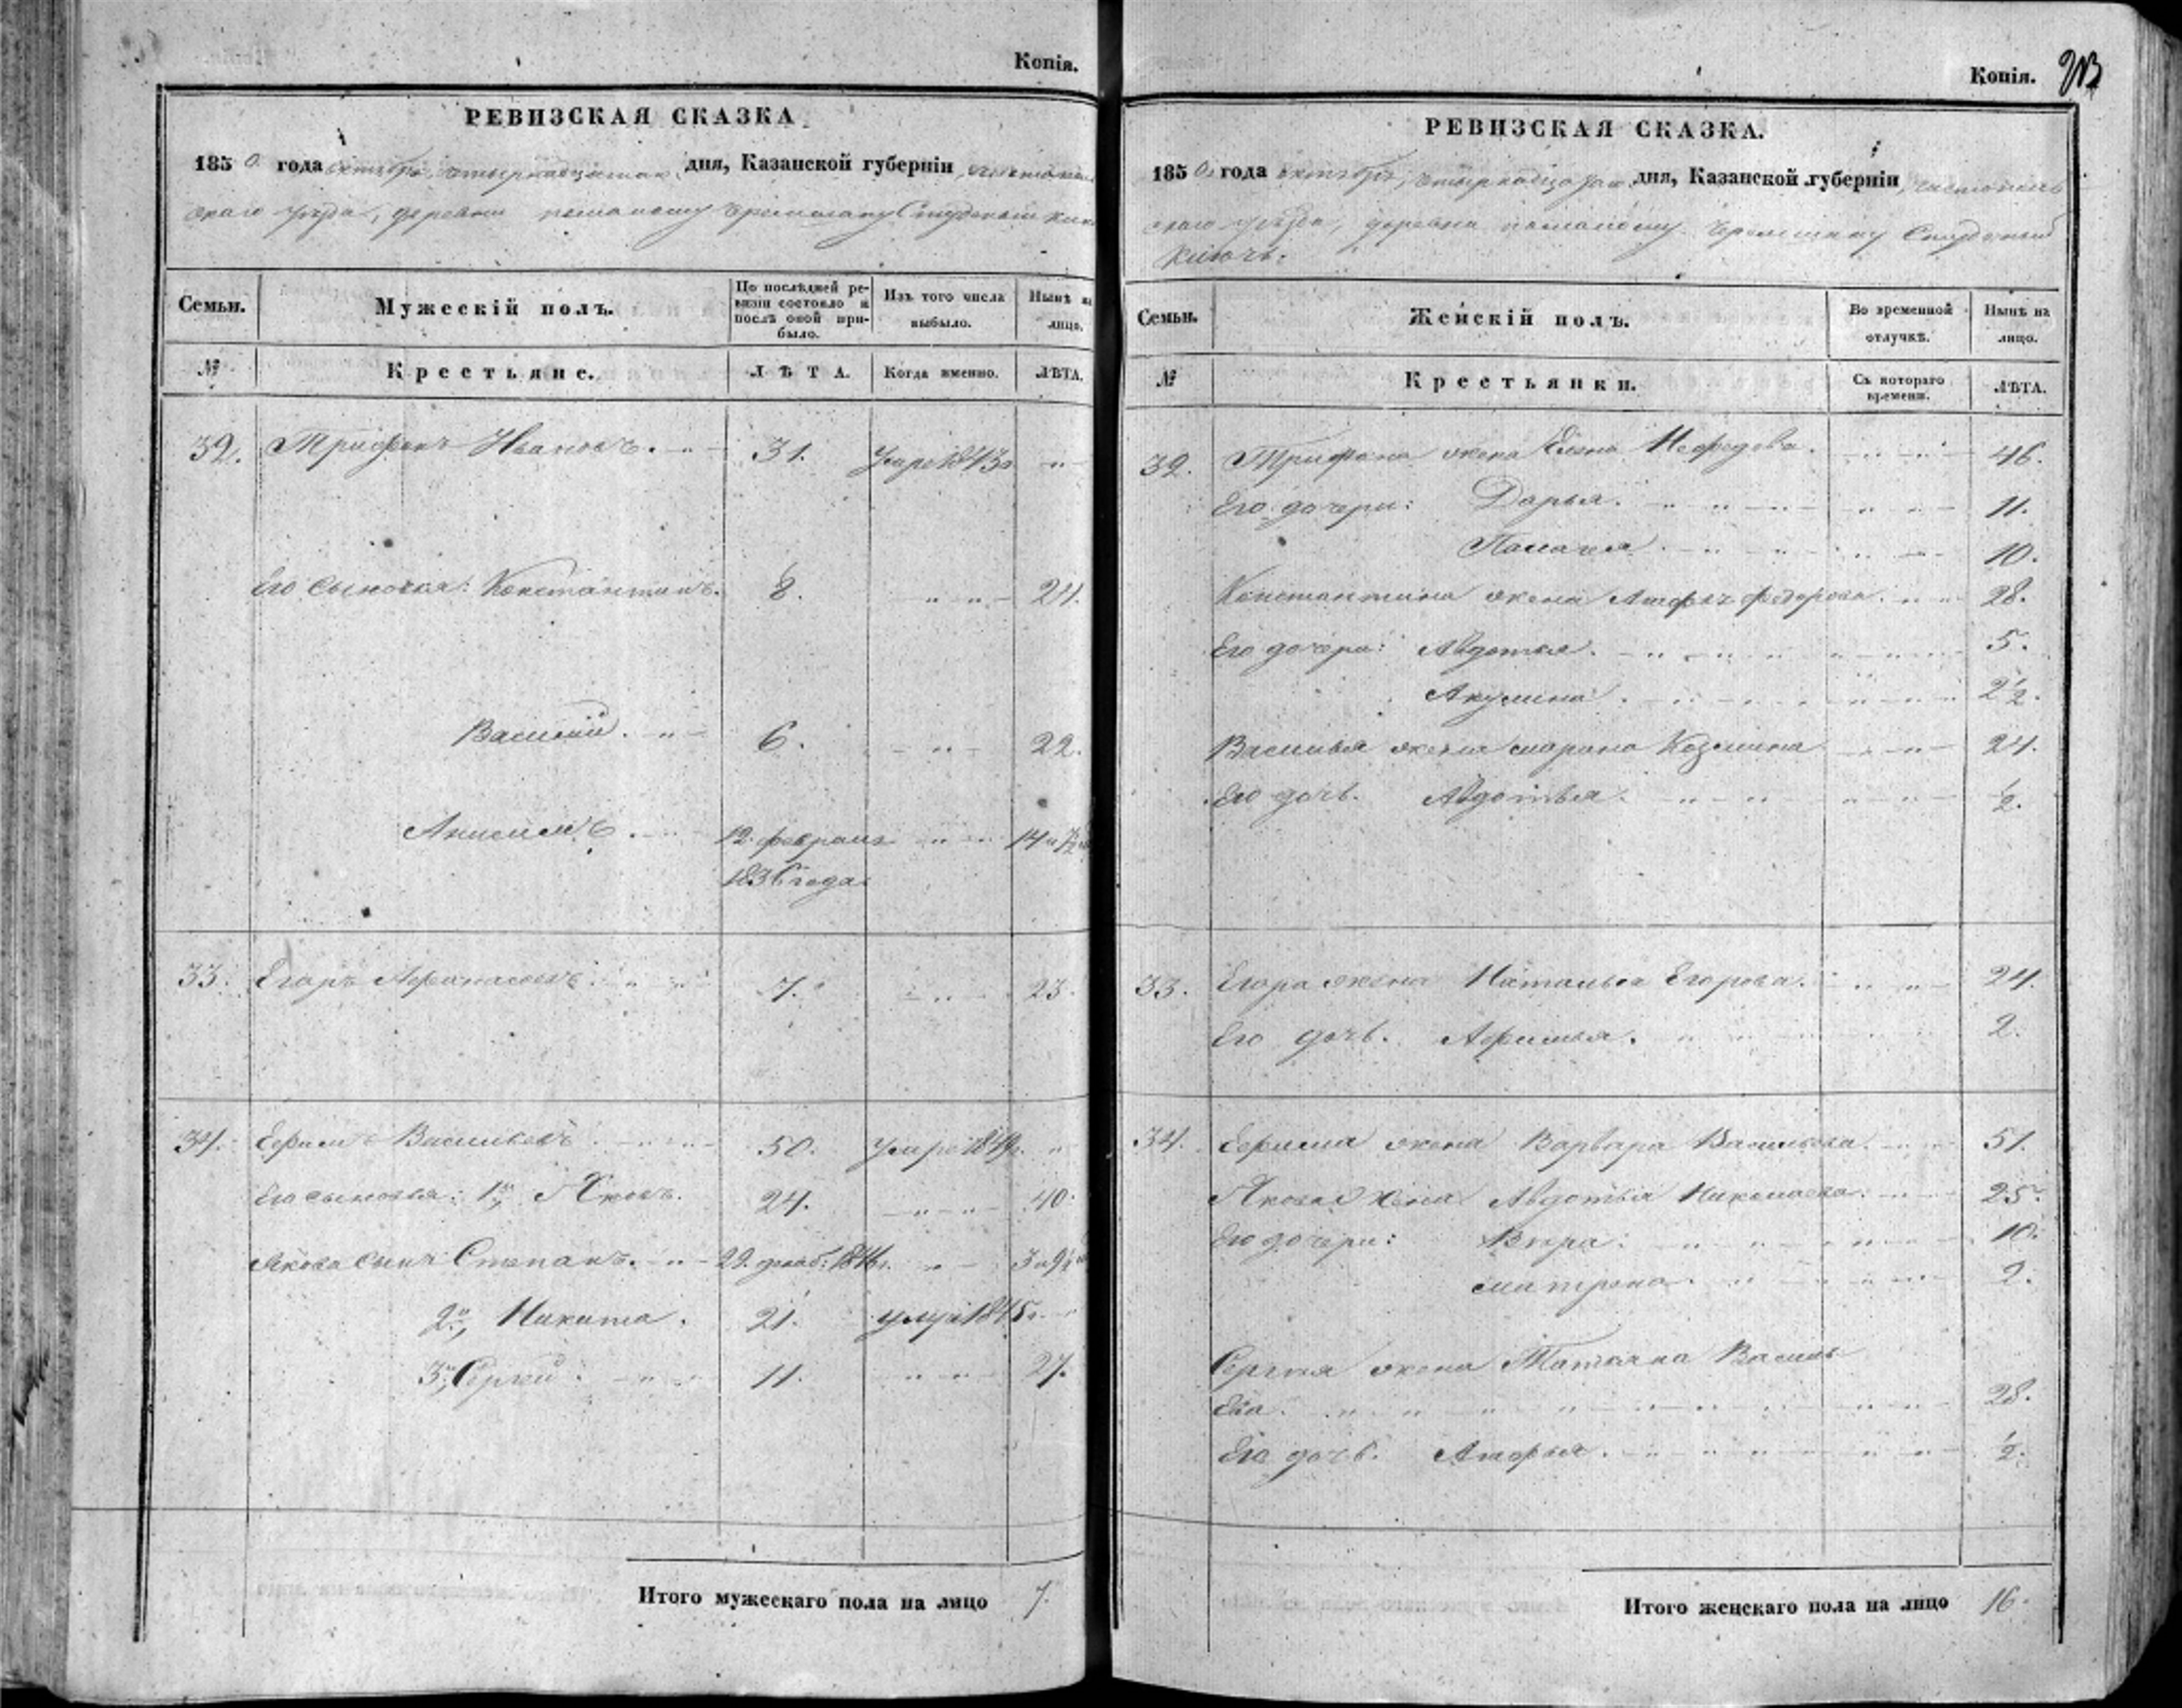 Копія.
РЕВИЗСКАЯ СКАЗКА.
185 0 года октября четырнадцатаго дня, Казанской губерніи, чистополь
скаго уѣзда, деревни помалому Черемшану Студеный клю
Семьи.
Мужескій полъ.
По послѣдней ре-
визіи состояло и
послѣ оной при-
было.
Изъ того числа
выбыло.
Нынѣ на
лицо.
№
Крестьяне.
ЛѢТА.
Когда именно.
ЛѢТА.
32. Трифонъ Ивановъ. 31. Умре 1843г
Его сыновья: Константинъ. 8. 24.
Василий. 6. 22.
Анисимъ. 12 февраля 14 и 7/12
1836 года
33. Егоръ Афанасьевъ. 7. 23.
34. Ефимъ Васильевъ 50. Умре 1849г.
Его сыновья: 1й, Яковъ. 24. 40.
Якова сынъ Степанъ. 22. декаб: 1846г. 3 и 9½
2й, Никита. 21. умре 1845г.
3й, Сергей. 11. 27.
Итого мужескаго пола на лицо 7.
Копія.
РЕВИЗСКАЯ СКАЗКА.
185 0. года октября, четырнадцатаго дня, Казанской губерніи, чистополь
скаго уѣзда, деревни помалому Черемшану Студеный
Ключь.
Семьи.
Женскій полъ.
Во временной
отлучкѣ.
Нынѣ на
лицо.
№
Крестьянки.
Съ котораго
времени.
ЛѢТА.
32. Трифона жена Елена Нефедова. 46.
Его дочери: Дарья. 11.
Палагея. 10.
Константина жена Федорова. 28.
Его дочери: Авдотья. 5.
Акулина. 2½.
Василья жена марина Козмина 24.
Его дочь. Авдотья. ½.
33. Егора жена Наталья Егорова. 24.
Его дочь. Афимья. 2.
34. Ефима жена Варвара Васильева. 51.
Якова жена Авдотья Николаева. 25.
Его дочери: Вѣра: 10.
матрена. 2.
Сергея жена Татьяна Василь
ева. 28.
Его дочь. Марфья. ½.
Итого женскаго пола на лицо 16.